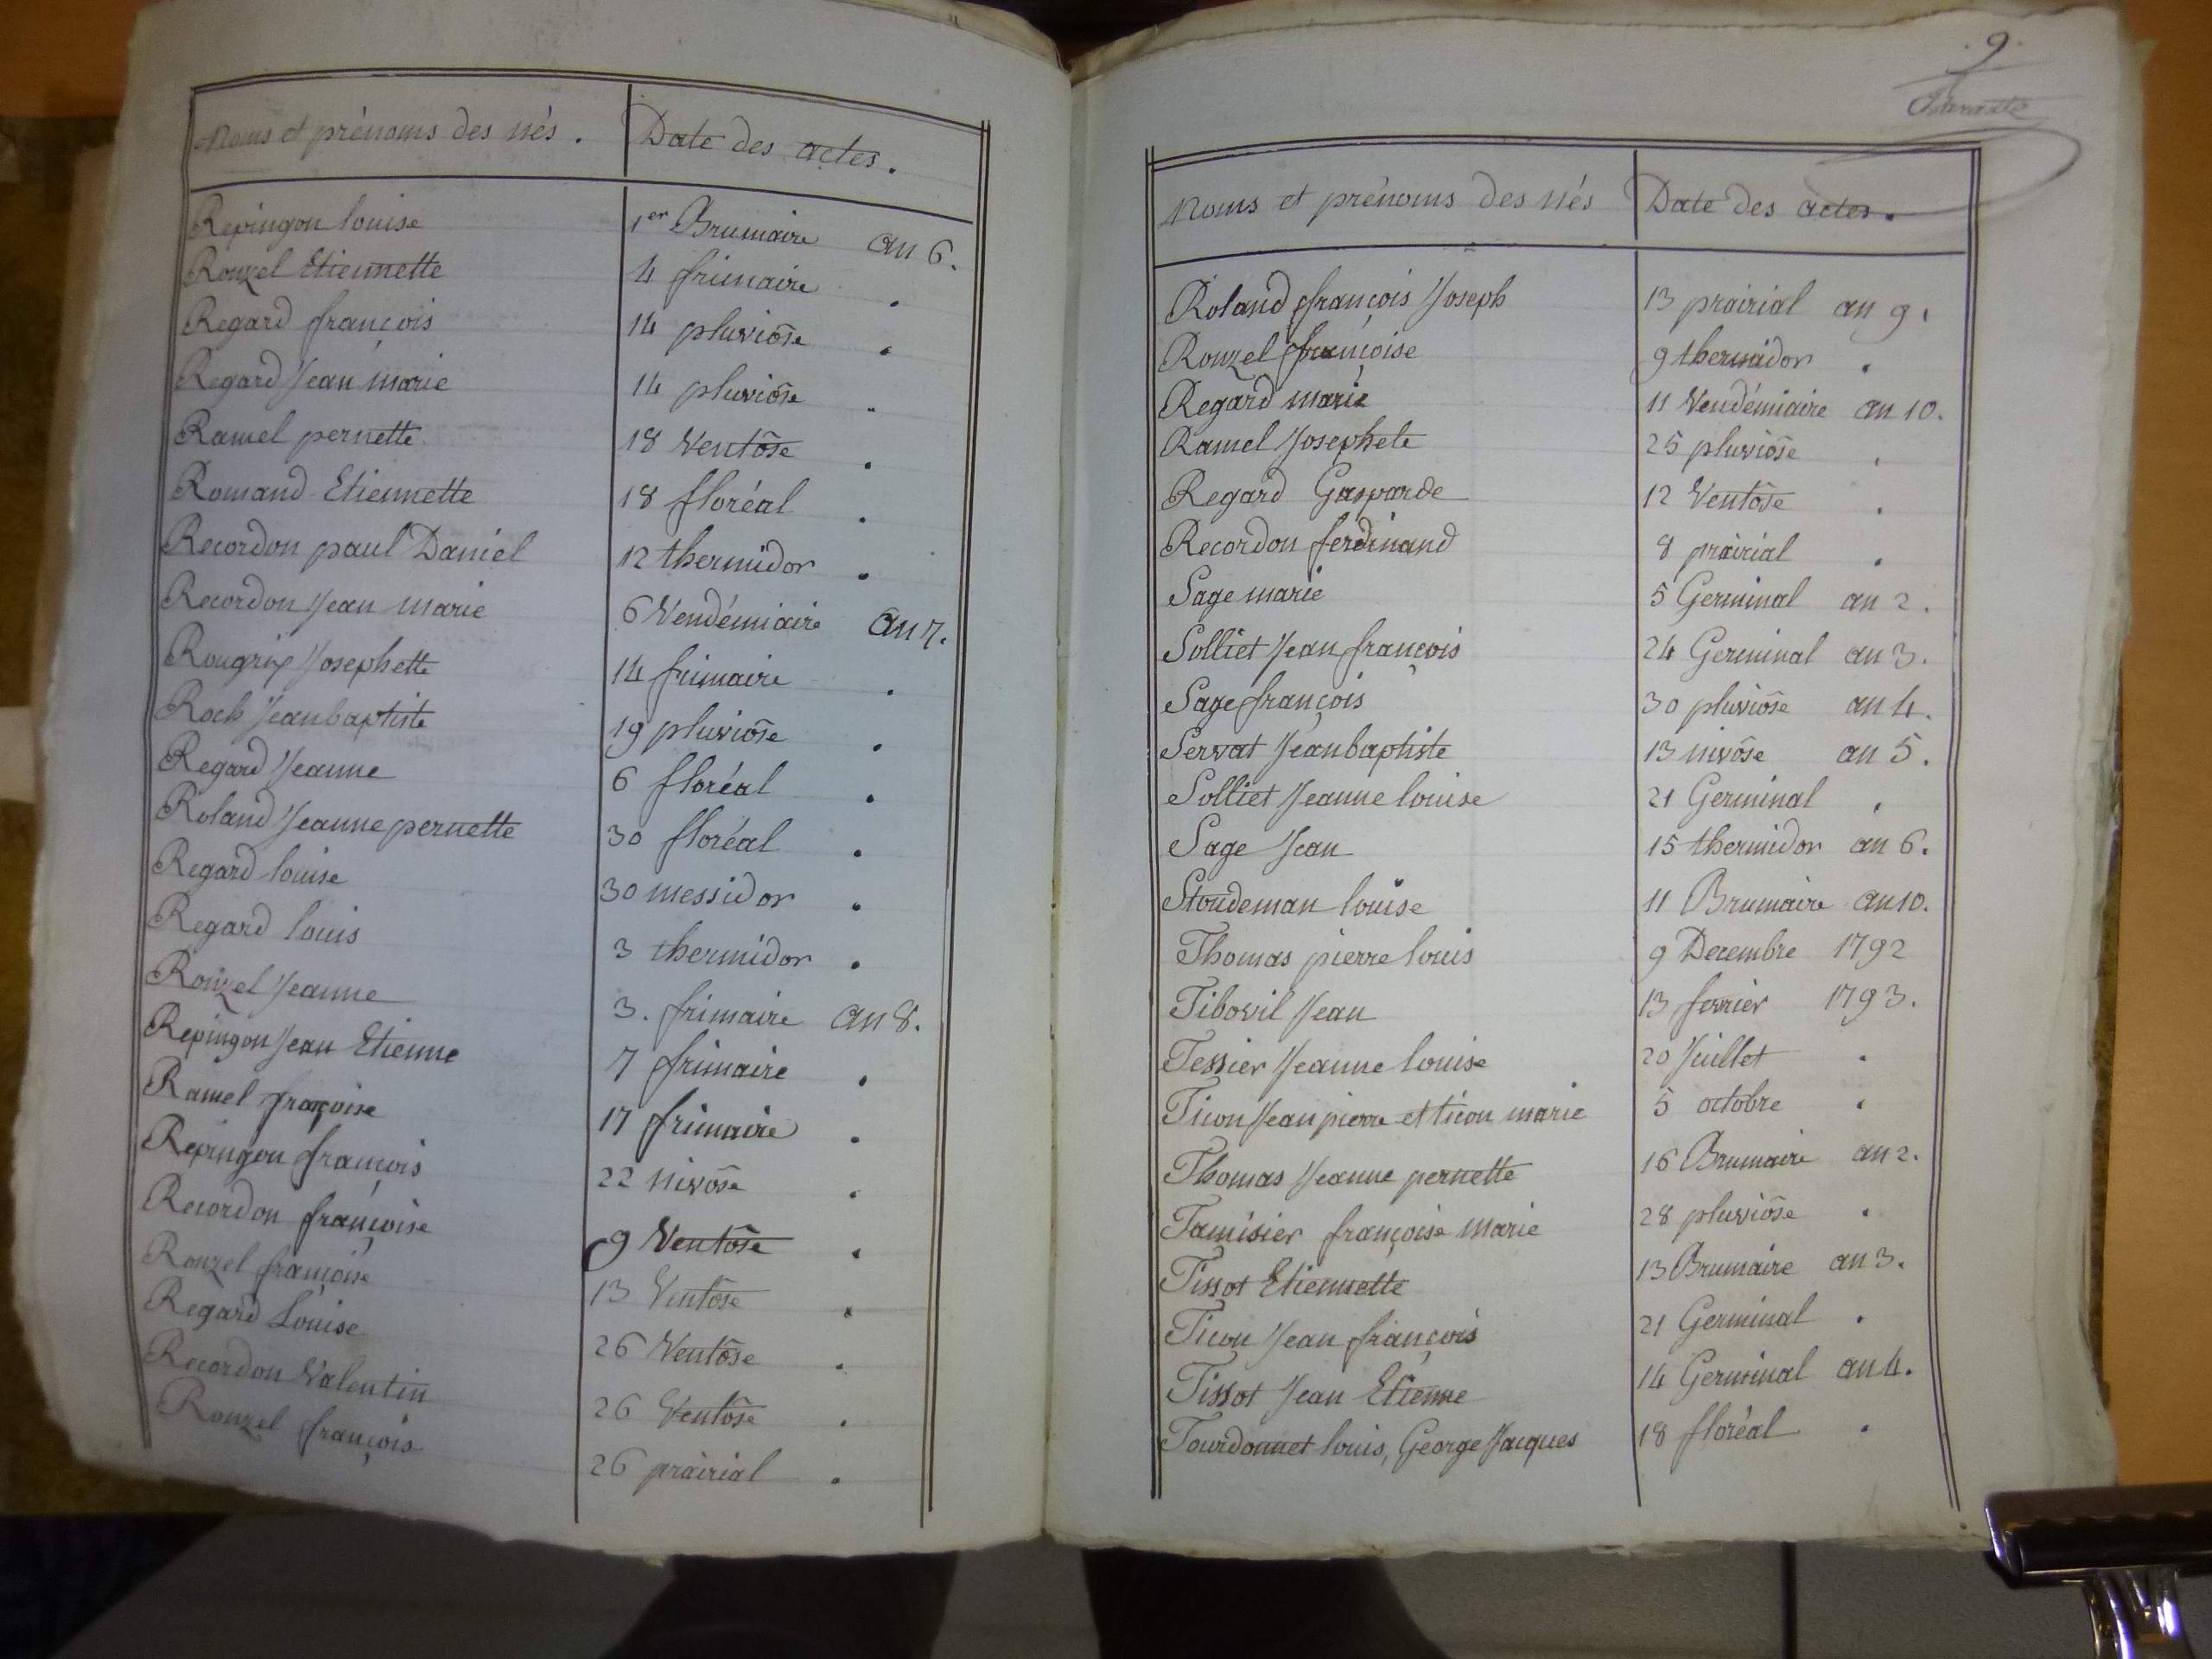 Noms et prénoms des nés. Date des actes.
Repingon louise 1er Brumaire an 6.
Rouzel Etiennette 4 frimaire .
Regard françois 14 pluviôse .
Regard Jean marie 14 pluviôse .
Ramel pernette 18 Ventôse .
Romand Etiennette 18 floréal .
Recordon paul Daniel 12 thermidor .
Recordon Jean marie 6 Vendémiaire an 7.
Rougrix Josephette 14 frimaire .
Roch Jean baptiste 19 pluviôse .
Regard Jeanne 6 floréal .
Roland Jeanne pernette 30 floréal .
Regard louise 30 messidor .
Regard louis 3 thermidor .
Rouzel Jeanne 3. frimaire an 8.
Repingon Jean Etienne 7 frimaire .
Ramel françoise 17 frimaire .
Repingon françois 22 nivôse .
Recordon françoise 9 Ventôse .
Rouzel françoise 13 Ventôse .
Regard Louise 26 Ventôse .
Recordon Valentin 26 Ventôse .
Rouzel françois 26 prairial .
.9.
Noms et prénoms des nés Date des actes.
Roland françois Joseph 13 prairial an 9.
Rouzel françoise 9 thermidor .
Regard marie 11 Vendémiaire an 10.
Ramel Josephete 25 pluviôse .
Regard Gasparde 12 Ventôse .
Recordon ferdinand 8 prairial .
Sage marie 5 Germinal an 2.
Solliet Jean françois 24 Germinal an 3.
Sage françois 30 pluviôse an 4.
Servat Jean baptiste 13 nivôse an 5.
Solliet Jeanne louise 21 Germinal .
Sage Jean 15 thermidor an 6.
Stoudeman louise 11 Brumaire an 10.
Thomas pierre louis 9 Decembre 1792
Tibovil Jean 13 fevrier 1793.
Tessier Jeanne louise 20 Juillet .
Ticon Jean pierre et ticon marie 5 octobre .
Thomas Jeanne pernette 16 Brumaire an 2.
Tamisier françoise marie 28 pluviôse .
Tissot Etiennette 13 Brumaire an 3.
Ticon Jean françois 21 Germinal .
Tissot Jean Etienne 14 Germinal an 4.
Tourdonnet louis, George Jacques 18 floréal .